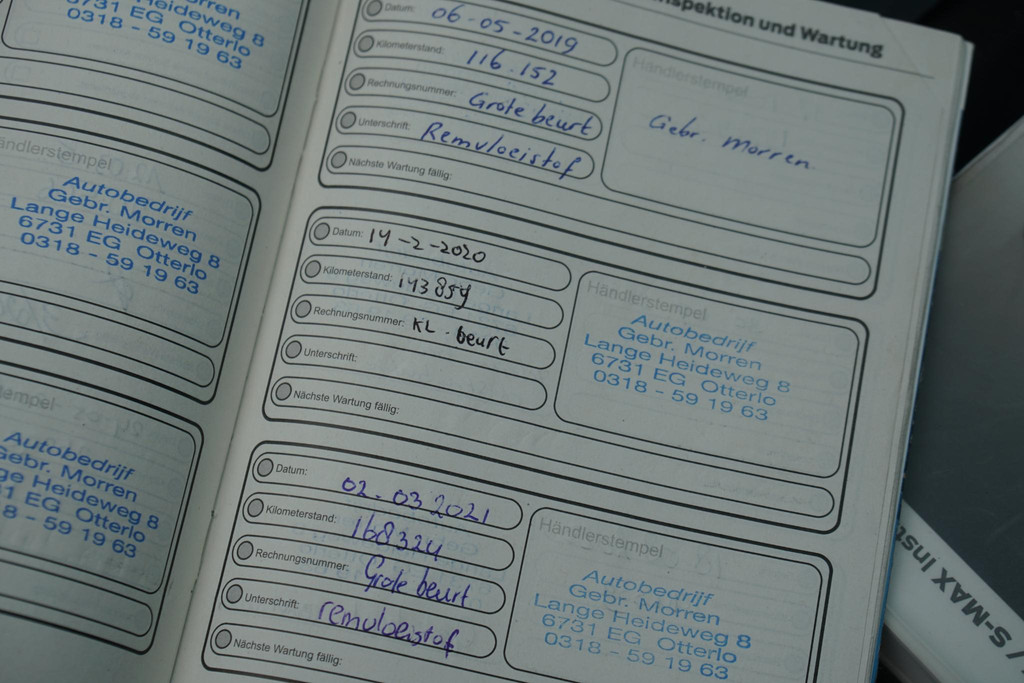 6731 EG Otterlo
0318 - 59 19 63
Händlerstempel
Autobedrijf
Gebr. Morren
Lange Heideweg 8
6731 EG Otterlo
0318 - 59 19 63
Autobedrijf
Gebr. Morren
Heideweg 8
EG Otterlo
59 19 63
Inspektion und Wartung
Datum: 06-05-2019
Kilometerstand: 116.152
Rechnungsnummer: Grote beurt
Unterschrift: Remvloeistof
Nächste Wartung fällig:
Händlerstempel
Gebr. Morren
Datum: 14-2-2020
Kilometerstand: 143854
Rechnungsnummer: KL. beurt
Unterschrift:
Nächste Wartung fällig:
Händlerstempel
Autobedrijf
Gebr. Morren
Lange Heideweg 8
6731 EG Otterlo
0318 - 59 19 63
Datum: 02-03 2021
Kilometerstand: 168324
Rechnungsnummer: Grote beurt
Unterschrift: remvloeistof
Nächste Wartung fällig:
Händlerstempel
Autobedrijf
Gebr. Morren
Lange Heideweg 8
6731 EG Otterlo
0318 - 59 19 63
S-MAX Inst